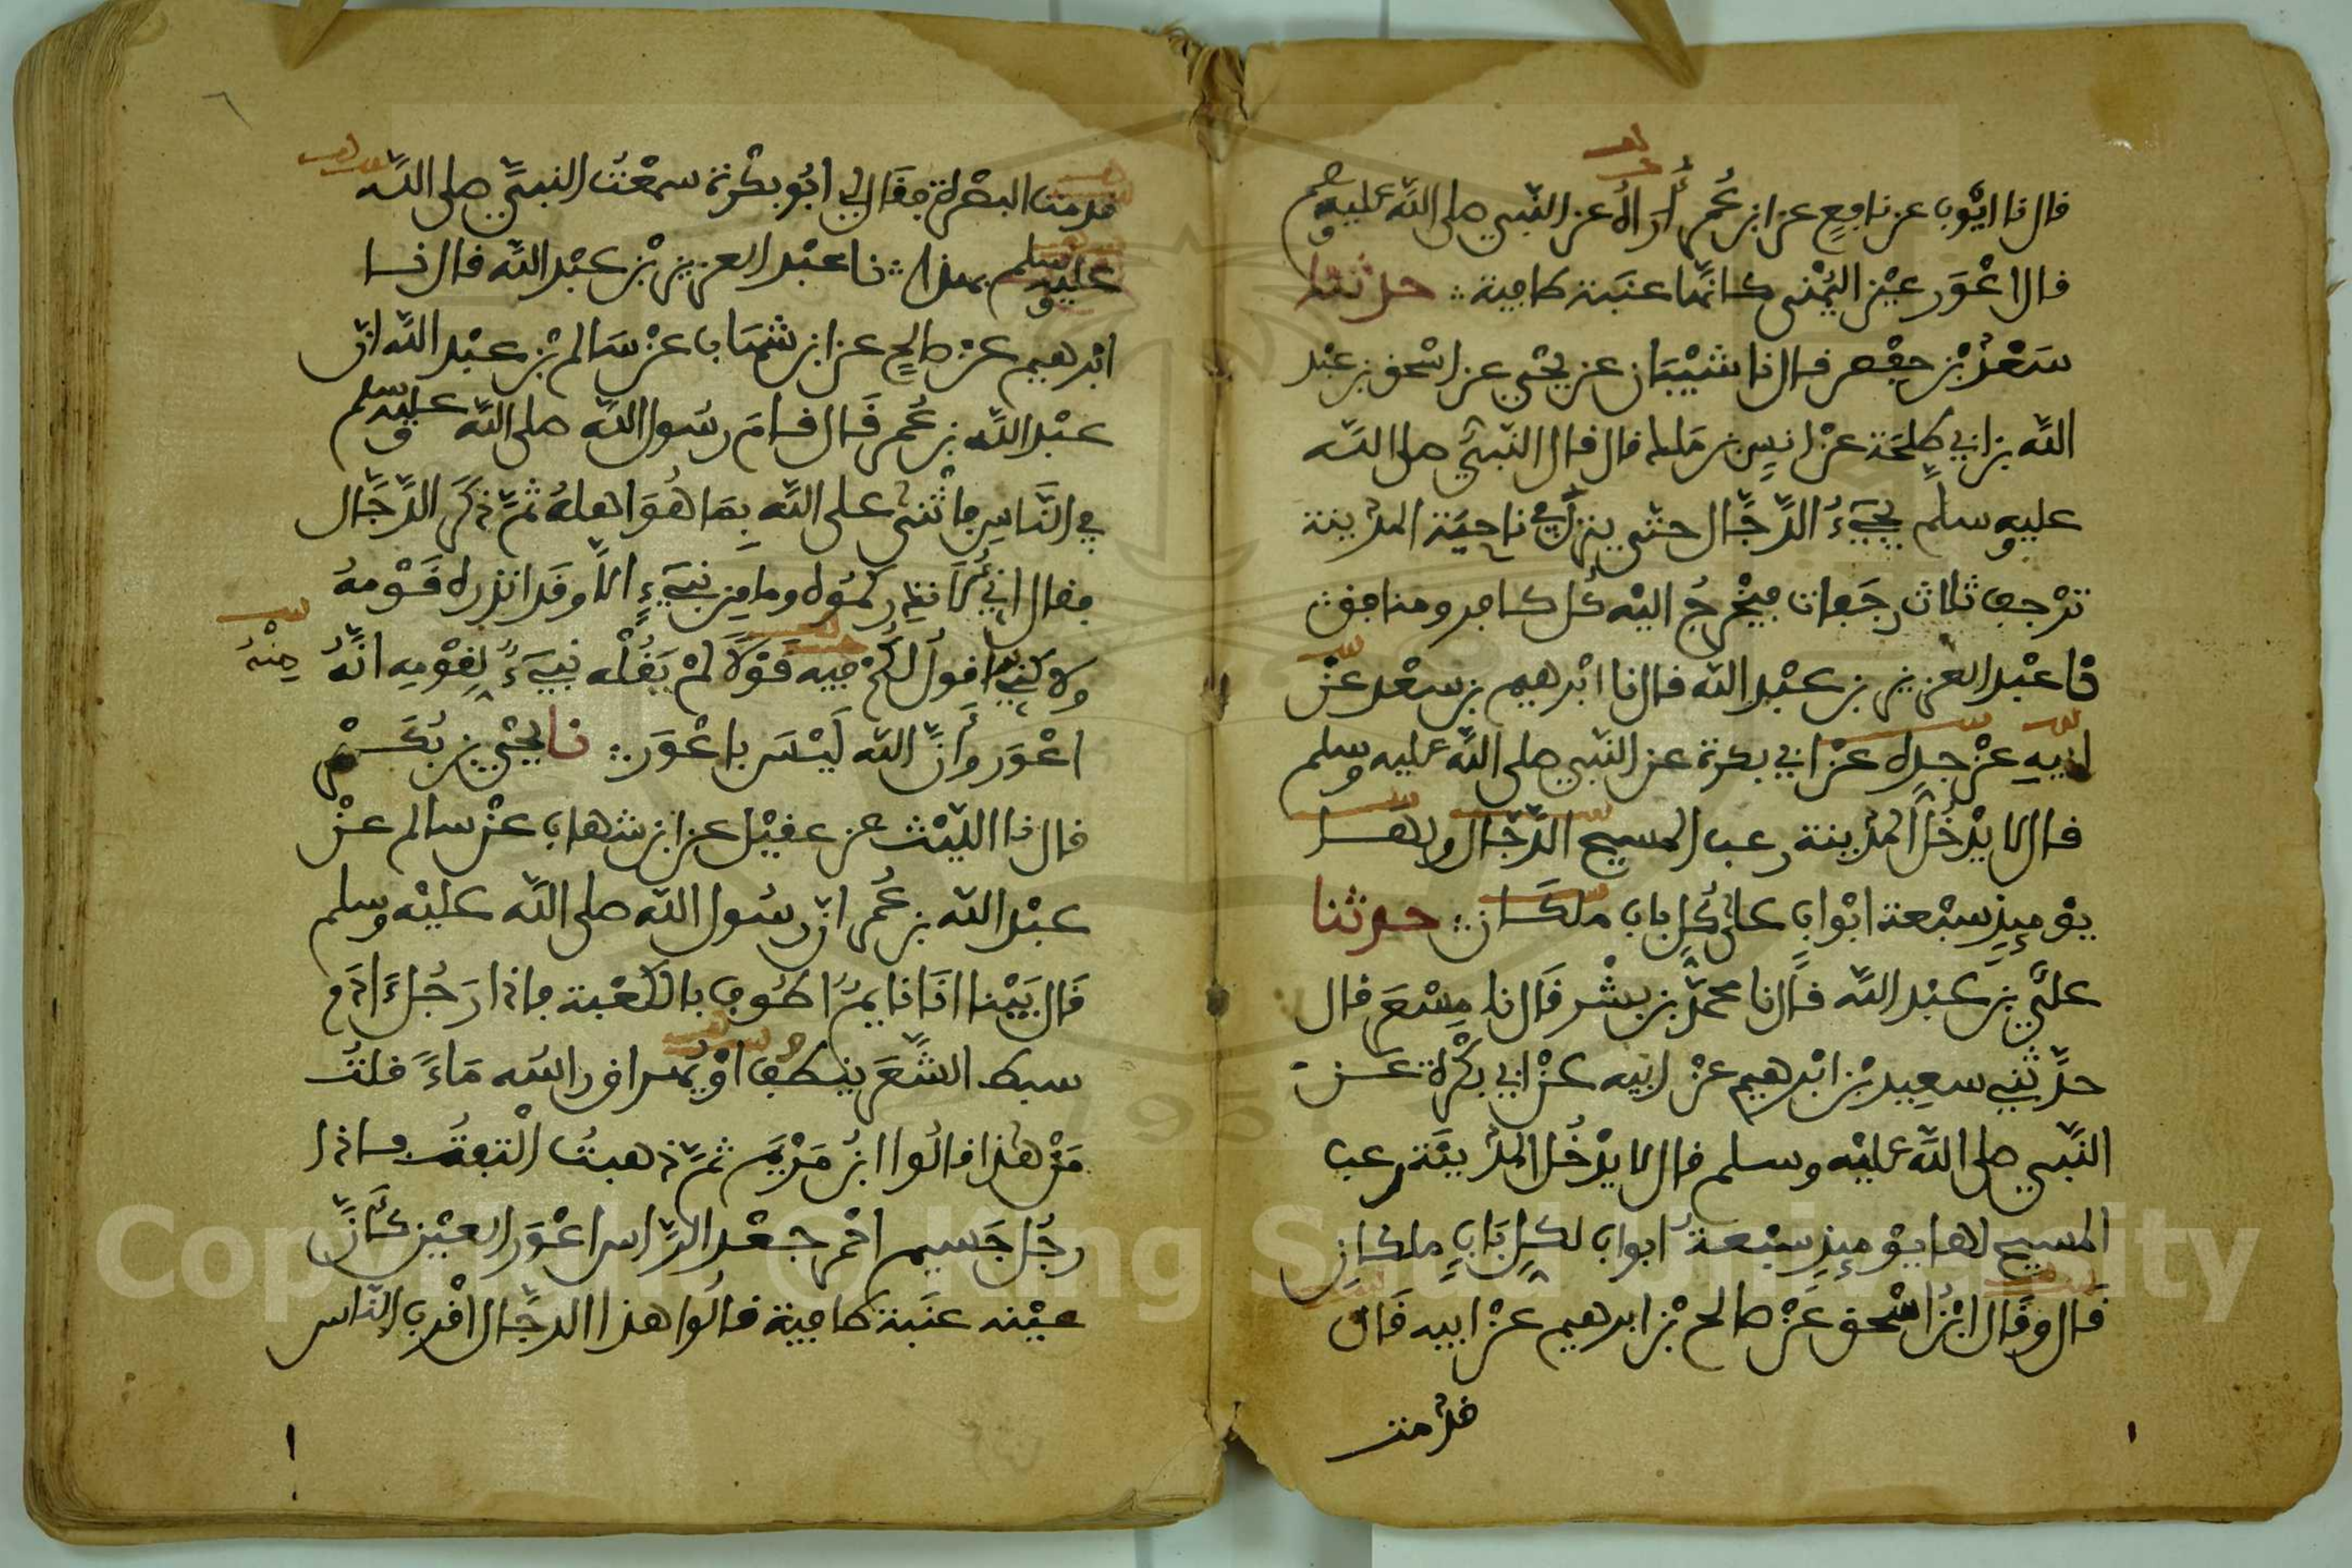 قال نا ايّوب عن نافع عن ابن عُمر أُرَاهُ عن النّبي صلى الله عليه وسلم
قال اعْوَر عيْن اليُمْنى كانّها عنَبَة طافية ∴ حدثنا
سَعْدُ بْن حفْص قال نا شيْبَان عن يحْيى عن اسْحٰق بن عبْد
الله بن ابي طلحَة عنْ انسِ بن مَلك قال قال النّبيّ صلى الله
عليه وسلم يجيءُ الدّجّال حتى ينزل في ناحيَة المدينة
ترْجف ثلاث رجَفات فيخْرجُ اليْه كُل كافر ومنافق
نا عبْد العزيز بن عبْد الله قال نا ابْرهيم بن سعْد عنْ
ابيهِ عنْ جده عنْ ابي بكرة عن النّبي صلى الله عليه وسلم
قال لا يدْخُل المدينة رعب المسيح الدّجّال ولها
يوْميذٍ سبْعة ابْواب على كُلّ باب ملكَان ∴ حدثنا
عليّ بن عبْد الله قال نا محمّد بن بشْر قَال نا مِسْعَر قال
حدّثني سعِيد بْن ابْرهيم عنْ ابيه عنْ ابي بكْرة عَن
النّبي صلى الله عليْه وسلم قال لا يدْخُل المدينَة رعب
المسيح لها يوْميذٍ سبْعةُ ابواب لكلّ بَابٍ ملكانِ
قَال وقَال ابْنُ اسْحٰق عَنْ صالح بْن ابرهيم عنْ ابيه قَال
قدمت
١
٦
قدمت البصْرة فقَال لي ابُو بكْرة سمعْتُ النبيّ صلى الله
عليه وسلم بهذا ∴ نا عبْد العزيز بْن عبْد الله قال نا
ابْرهيم عنْ صالحٍ عن ابن شهَاب عنْ سَالم بْن عبْد الله انّ
عبْد الله بن عُمر قَال قامَ رسُول الله صلى الله عليه وسلم
في النّاس فأثْنى على الله بِمَا هُوَ اهله ثمّ ذكَر الدّجّال
فقال انّي لأنذركمُوه وما مِن نبيءٍ الاّ وقَد انذره قَوْمهُ
ولاكنّي اقولُ لكُمْ فيه قوْلا لمْ يَقُلْه نبيءٌ لقوْمِه انّهُ
مِنْهُ
اعْوَر وأَنّ الله لَيْسَ باعْوَر ∴ نا يحْيى بن بُكَيْر
قال نا اللّيْث عن عقيْل عن ابن شهاب عنْ سالم عنْ
عبْد الله بن عُمر انّ رسُول الله صلى الله عليْه وسلم
قَال بَيْنا انَا نايمٌ اطُوف بالكعْبة فاذا رَجُل ءَادَم
سبط الشّعَر ينطُف اوْ يُهراق راسُه مَاءً قلتُ
مَنْ هٰذا قالُوا ابْنُ مَرْيَم ثمّ ذهبتُ الْتفِتُ فاذا
رجُل جَسيم احْمر جعْد الرّاس اعْوَر العيْن كَأَنّ
عيْنه عنَبة طافية قالُوا هذا الدجّال اقْرب النّاس
Copyright © King Saud University